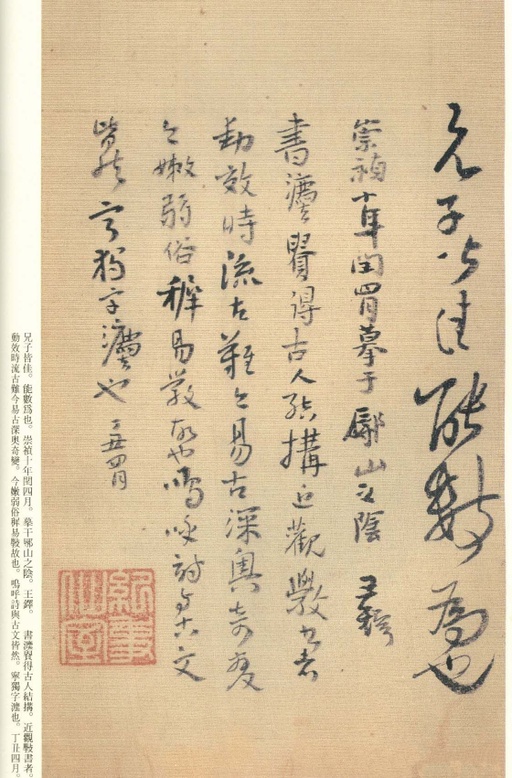 兄子皆佳能數為也
崇禎十年閏四月摹于山之陰 王鐸
書灋貴得古人結搆近觀斅書者
動效時流古難今易古深奧奇變
今嫩弱俗稺易斅故也嗚呼詩與古文
皆然寧獨字灋也 丁丑四月
兄子皆佳。能數爲也。崇禎十年閏四月。摹于山之陰。王鐸。 書灋貴得古人結搆。近觀斅書者。
動效時流古難今易古深奧奇變。今嫩弱俗稺易斅故也。嗚呼詩與古文皆然。寧獨字灋也。丁丑四月。